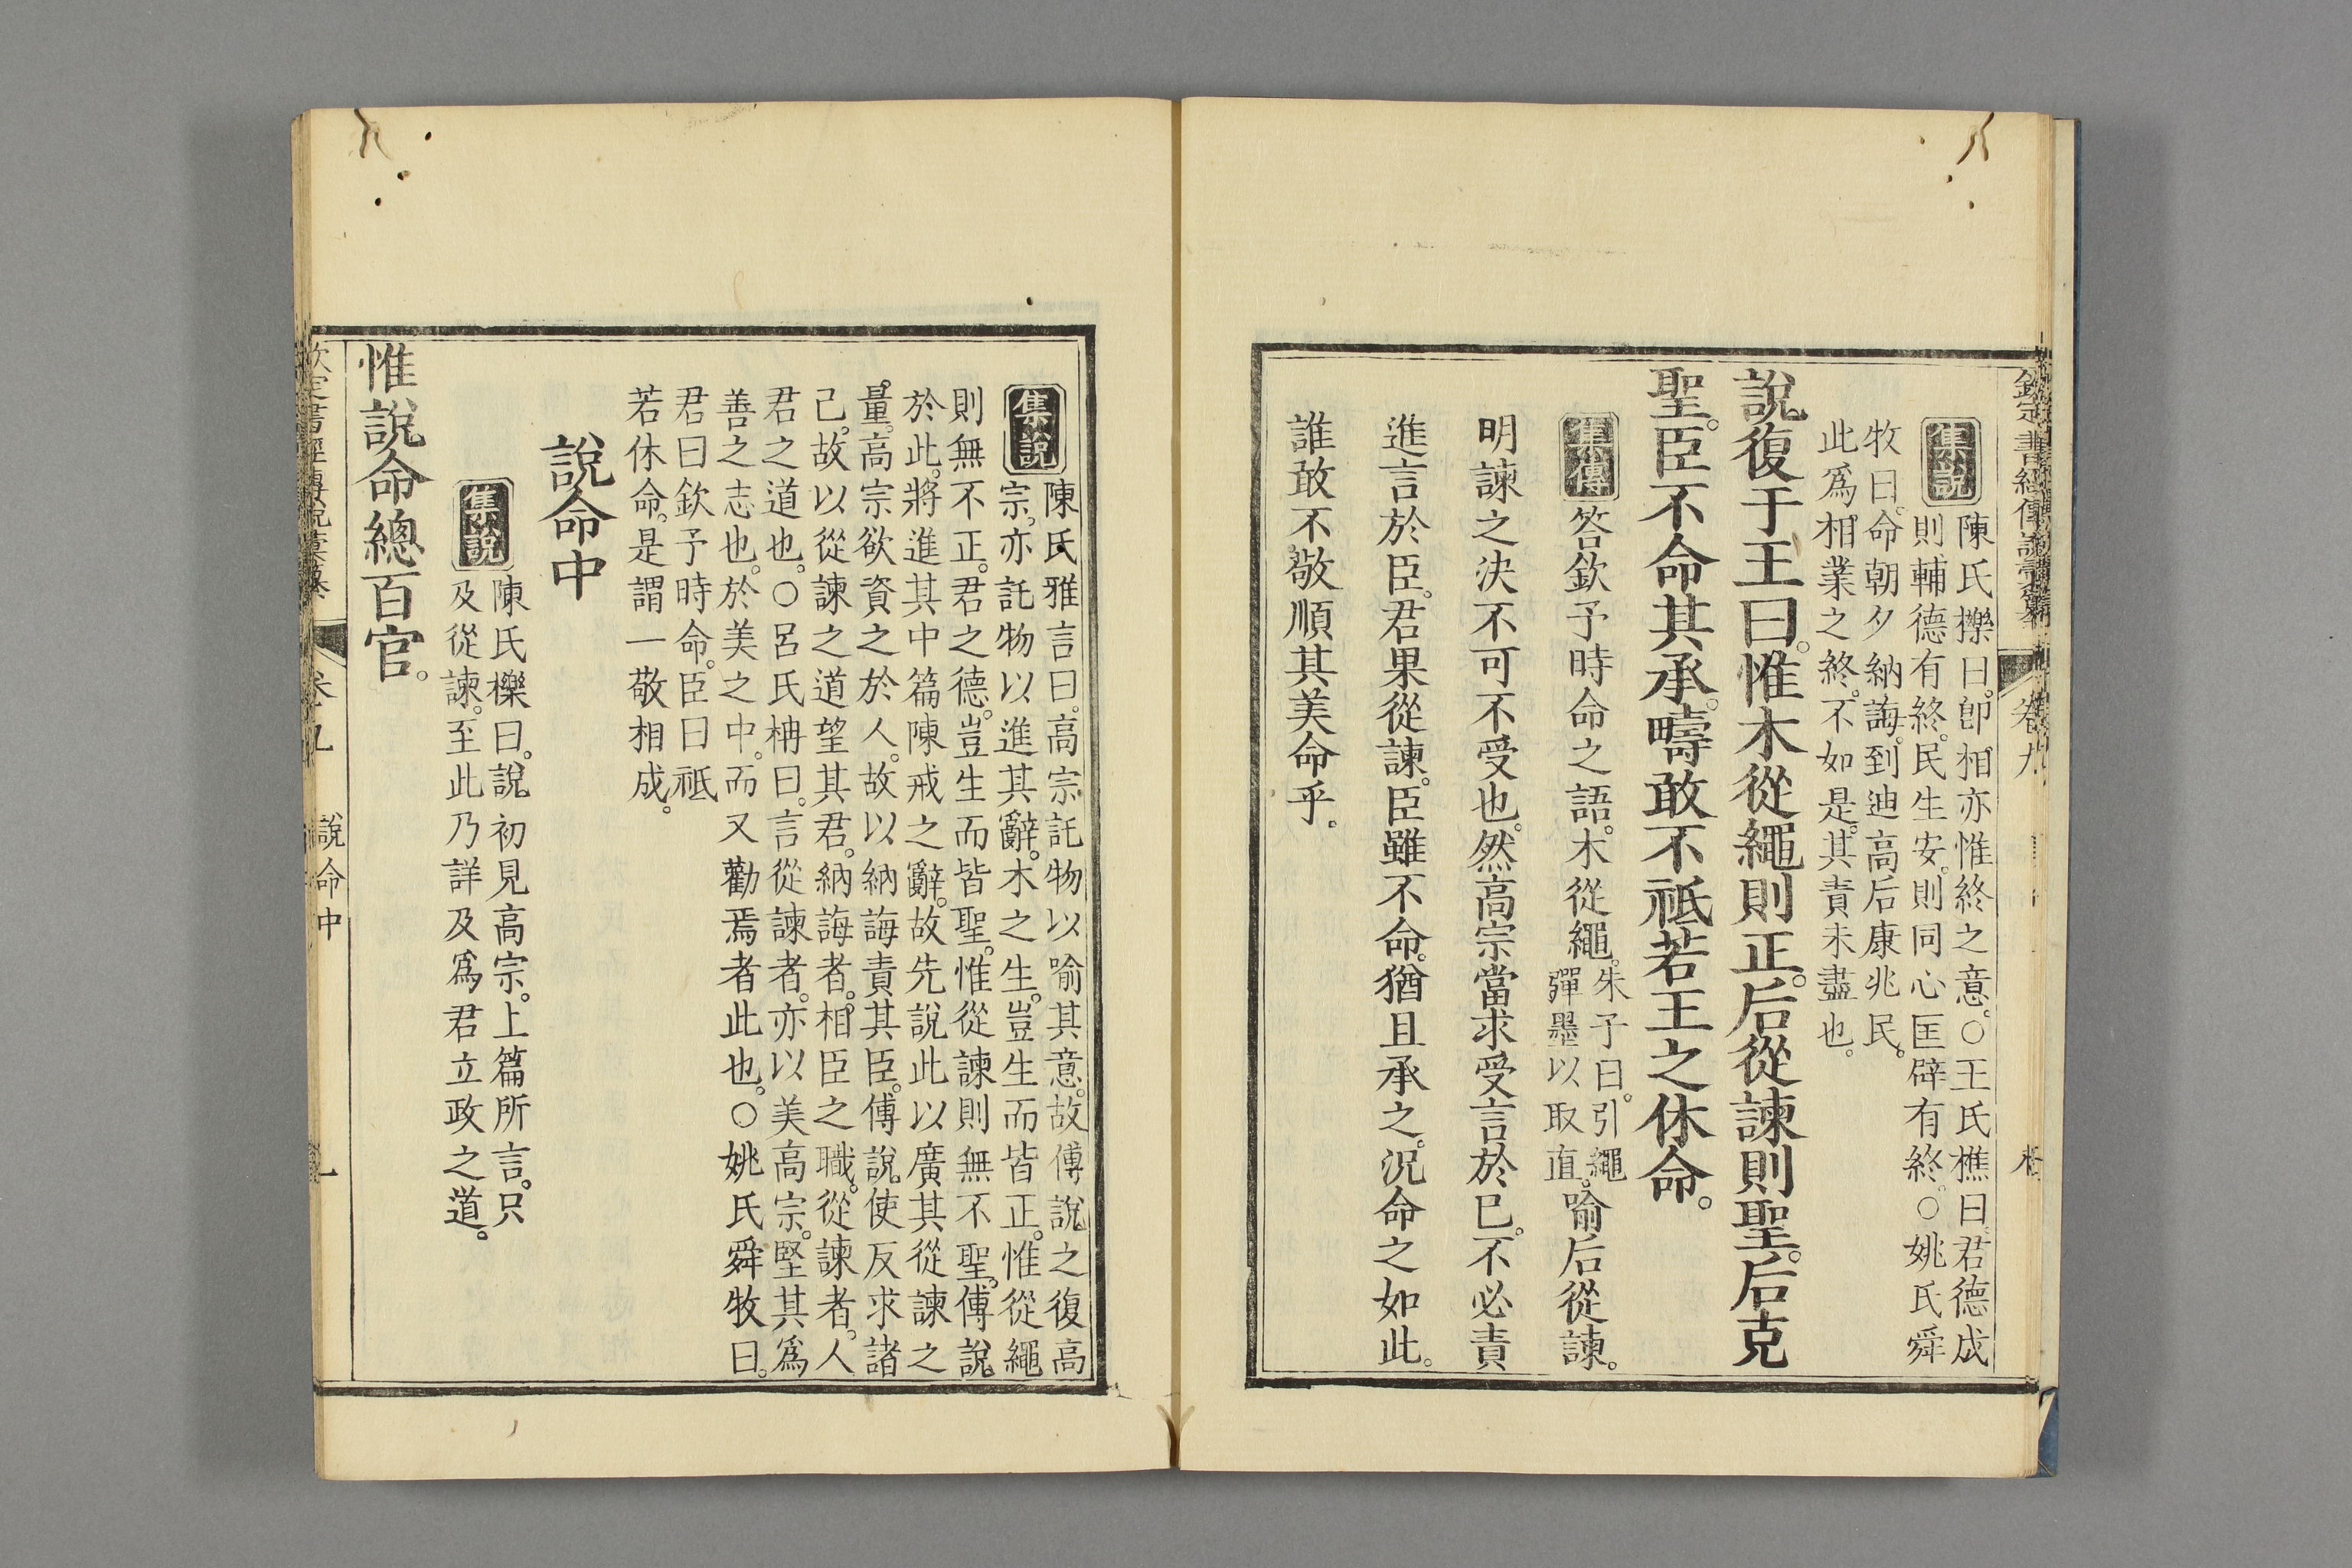 欽定書經傳說彙纂 卷九
集說 陳氏擽曰。卽相亦惟終之意。○王氏樵曰。君德成
則輔德有終。民生安。則同心匡辟有終。○姚氏舜
牧曰。命朝夕納誨。到迪高后康兆民。
此爲相業之終。不如是。其責未盡也。
說復于王曰。惟木從繩則正。后從諫則聖。后克
聖。臣不命其承。疇敢不祗若王之休命。
集傳 答欽予時命之語。木從繩。朱子曰。引繩
彈墨以取直。喻后從諫。
明諫之決不可不受也。然高宗當求受言於已。不必責
進言於臣。君果從諫。臣雖不命。猶且承之。況命之如此。
誰敢不敬順其美命乎。
集說 陳氏雅言曰。高宗託物以喻其意。故傅說之復高
宗。亦託物以進其辭。木之生。豈生而皆正。惟從繩
則無不正。君之德。豈生而皆聖。惟從諫則無不聖。傅說
於此。將進其中篇陳戒之辭。故先說此以廣其從諫之
量。高宗欲資之於人。故以納誨責其臣。傅說使反求諸
己。故以從諫之道望其君。納誨者。相臣之職。從諫者。人
君之道也。○呂氏柟曰。言從諫者。亦以美高宗。堅其爲
善之志也。於美之中。而又勸焉者此也。○姚氏舜牧曰。
君曰欽予時命。臣曰祗
若休命。是謂一敬相成。
說命中
集說 陳氏櫟曰。說初見高宗。上篇所言。只
及從諫。至此乃詳及爲君立政之道。
惟說命總百官。
欽定書經傳說彙纂 卷九 說命中